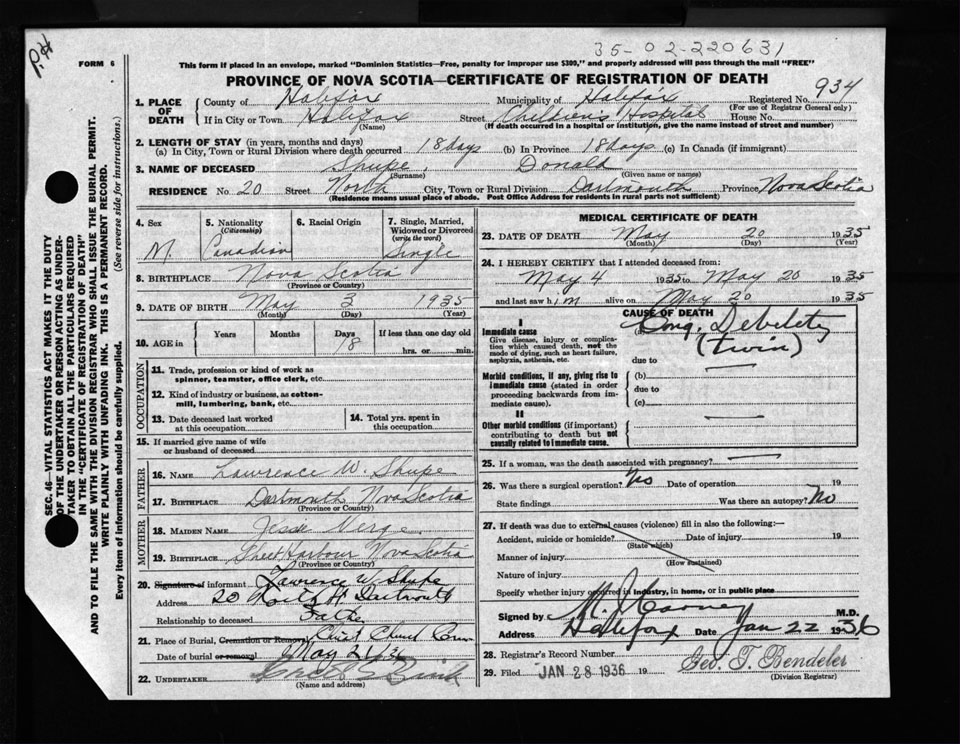 P.H
35-02-220631
FORM 6
This form if placed in an envelope, marked "Dominion Statistics—Free, penalty for improper use $300," and properly addressed will pass through the mail "FREE"
PROVINCE OF NOVA SCOTIA—CERTIFICATE OF REGISTRATION OF DEATH
934
1. PLACE OF DEATH County of Halifax Municipality of Halifax Registered No.
(For use of Registrar General only)
If in City or Town Halifax Street Children's Hospital House No.
(Name) (If death occurred in a hospital or institution, give the name instead of street and number)
2. LENGTH OF STAY (in years, months and days)
(a) In City, Town or Rural Division where death occurred 18 days (b) In Province 18 days (c) In Canada (if immigrant)
3. NAME OF DECEASED Shupe Donald
(Surname) (Given name or names)
RESIDENCE No. 20 Street North City, Town or Rural Division Dartmouth Province Nova Scotia
(Residence means usual place of abode. Post Office Address for residents in rural parts not sufficient)
SEC. 46—VITAL STATISTICS ACT MAKES IT THE DUTY
OF THE UNDERTAKER OR PERSON ACTING AS UNDER-
TAKER TO OBTAIN ALL THE PARTICULARS REQUIRED
IN THE "CERTIFICATE OF REGISTRATION OF DEATH"
AND TO FILE THE SAME WITH THE DIVISION REGISTRAR WHO SHALL ISSUE THE BURIAL PERMIT.
WRITE PLAINLY WITH UNFADING INK. THIS IS A PERMANENT RECORD.
Every item of information should be carefully supplied. (See reverse side for instructions.)
4. Sex 5. Nationality 6. Racial Origin 7. Single, Married,
(Citizenship) Widowed or Divorced
(write the word)
M. Canadian Single
8. BIRTHPLACE Nova Scotia
(Province or Country)
9. DATE OF BIRTH May 3 1935
(Month) (Day) (Year)
10. AGE in Years Months Days If less than one day old
18 hrs. or min.
OCCUPATION
11. Trade, profession or kind of work as
spinner, teamster, office clerk, etc.
12. Kind of industry or business, as cotton-
mill, lumbering, bank, etc.
13. Date deceased last worked 14. Total yrs. spent in
at this occupation this occupation
15. If married give name of wife
or husband of deceased
FATHER
16. NAME Lawrence W. Shupe
17. BIRTHPLACE Dartmouth Nova Scotia
(Province or Country)
MOTHER
18. MAIDEN NAME Jessie Verge
19. BIRTHPLACE Sheet Harbour Nova Scotia
(Province or Country)
20. Signature of informant Lawrence W Shupe
Address 20 North St Dartmouth
Relationship to deceased Father
21. Place of Burial, Cremation or Removal Christ Church Cem
Date of burial or removal May 21/35
22. UNDERTAKER
(Name and address)
MEDICAL CERTIFICATE OF DEATH
23. DATE OF DEATH May 20 1935
(Month) (Day) (Year)
24. I HEREBY CERTIFY that I attended deceased from:
May 4 1935 to May 20 1935
and last saw him alive on May 20 1935
CAUSE OF DEATH
I
Immediate cause
Give disease, injury or complica-
tion which caused death, not the
mode of dying, such as heart failure,
asphyxia, asthenia, etc.
(a) Cong. Debility
(twin)
due to
Morbid conditions, if any, giving rise to
immediate cause (stated in order
proceeding backwards from im-
mediate cause).
(b)
due to
(c)
II
Other morbid conditions (if important)
contributing to death but not
causally related to immediate cause.
25. If a woman, was the death associated with pregnancy?
26. Was there a surgical operation? No Date of operation 19
State findings Was there an autopsy? No
27. If death was due to external causes (violence) fill in also the following:—
Accident, suicide or homicide? Date of injury 19
(State which)
Manner of injury
(How sustained)
Nature of injury
Specify whether injury occurred in industry, in home, or in public place
Signed by M. J. Carney M.D.
Address Halifax Date Jan 22 1936
28. Registrar's Record Number
29. Filed JAN 28 1936 19 Geo. T. Bendeler
(Division Registrar)